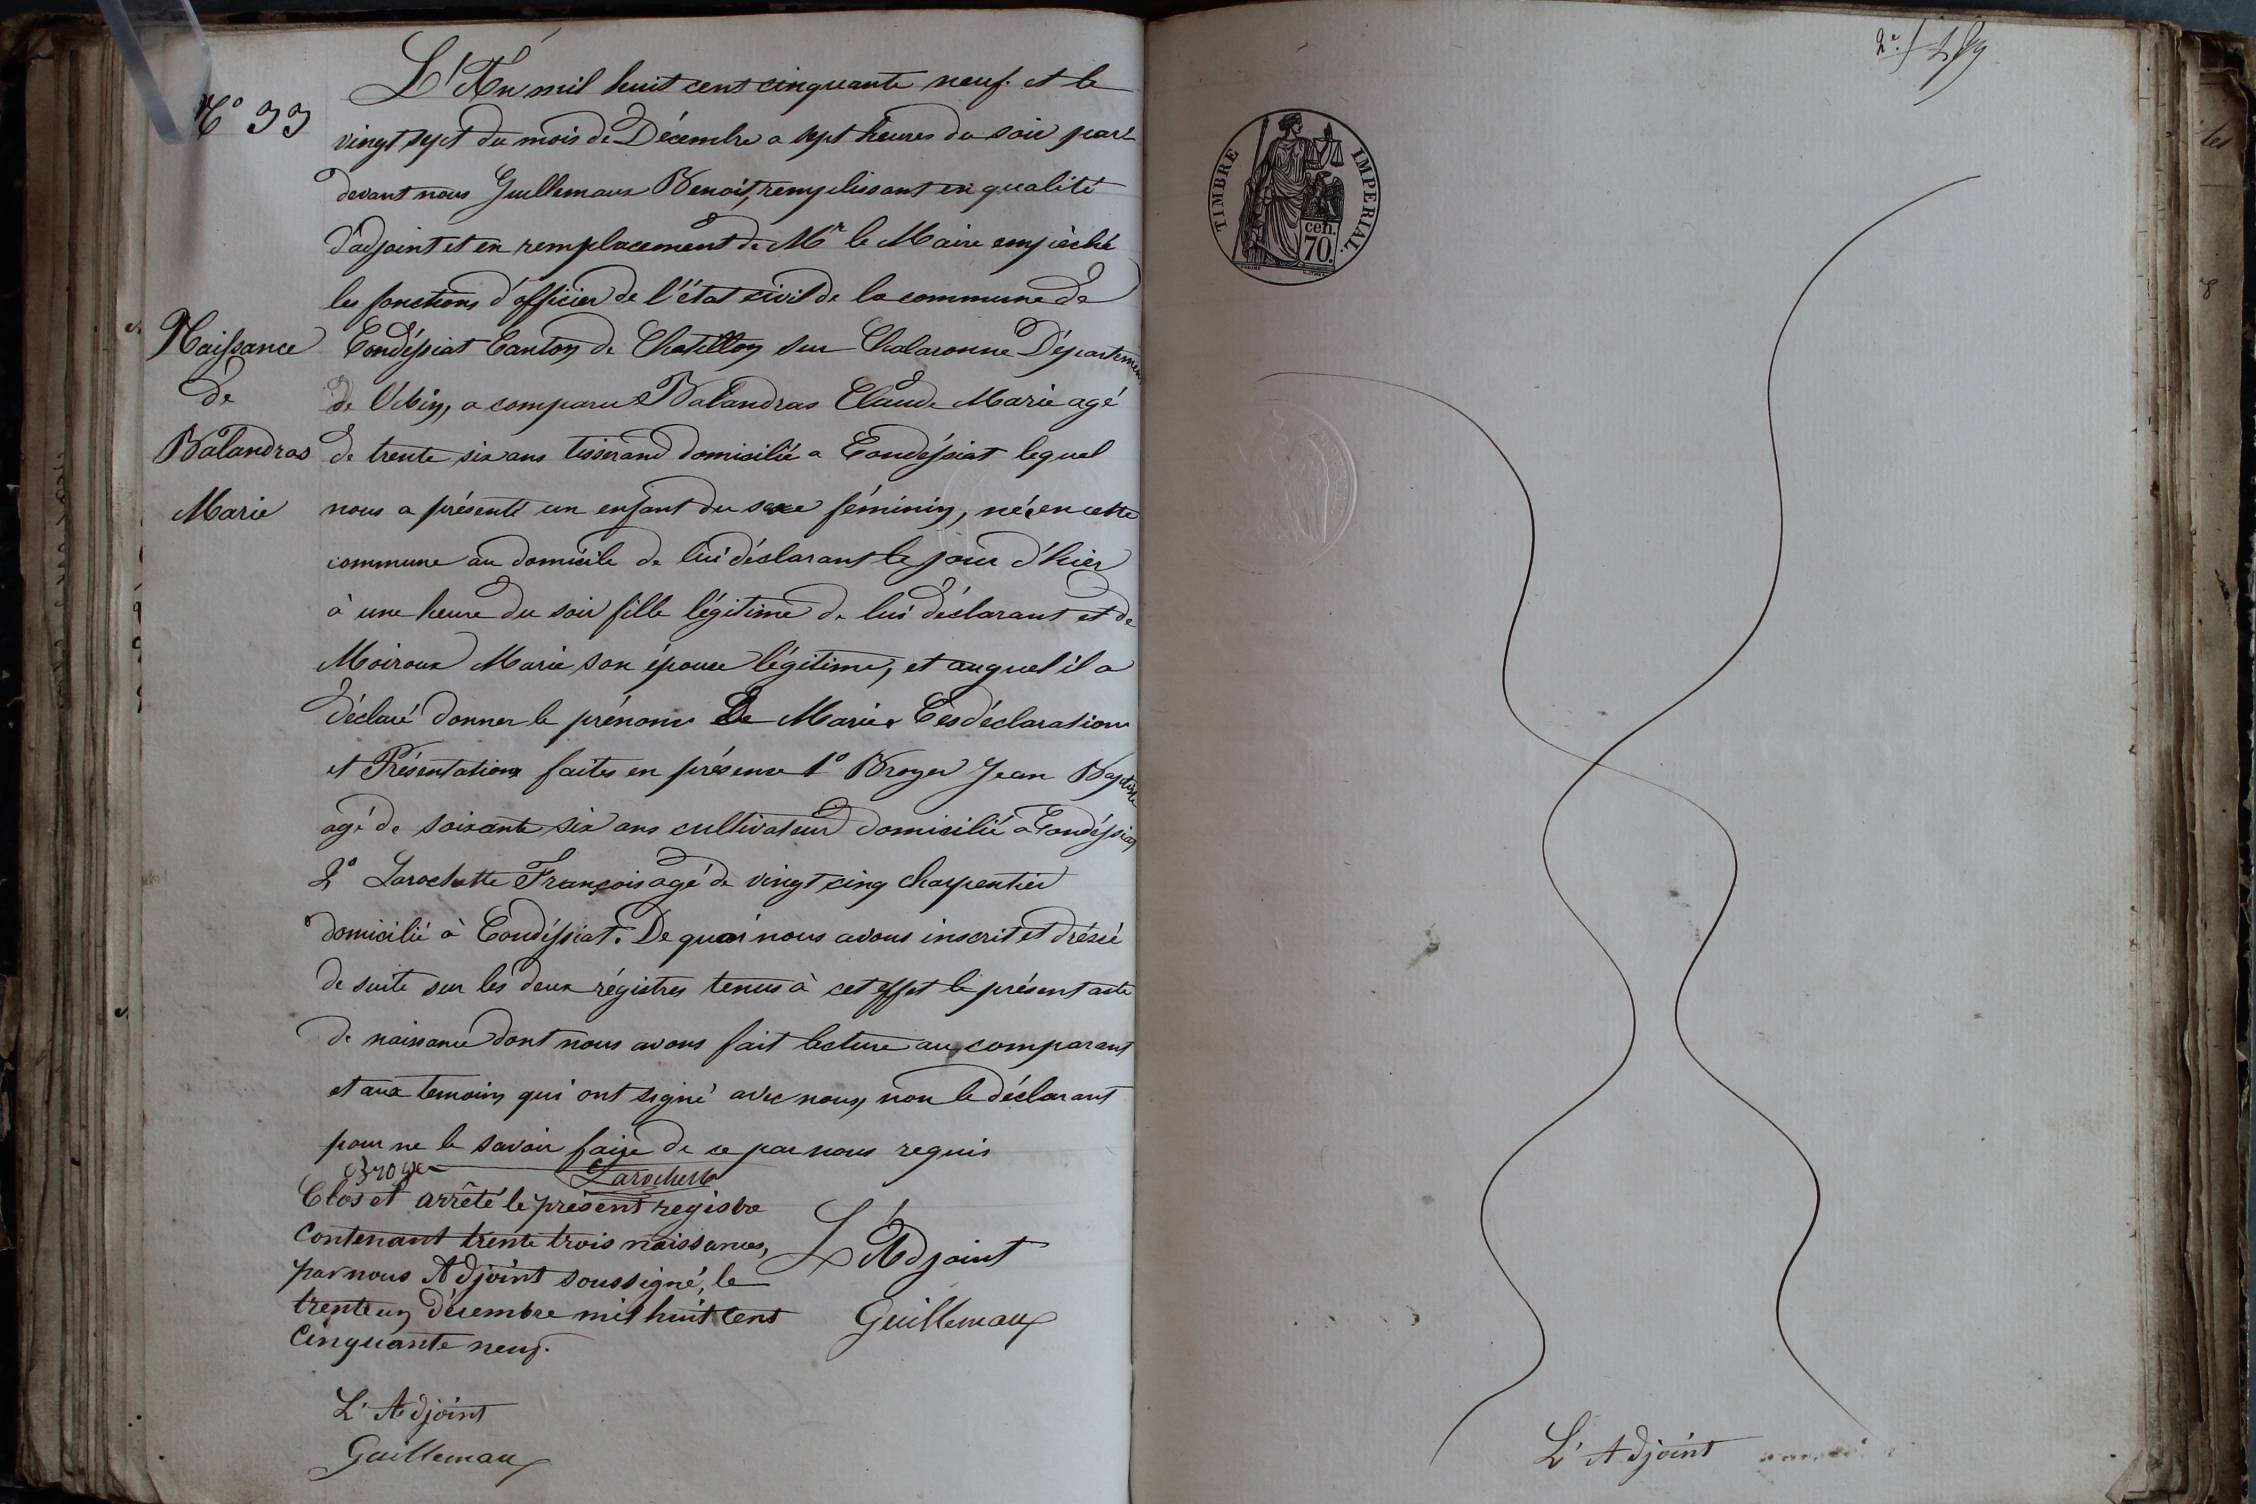 N° 33
Naissance
de
Balandras
Marie
L'An mil huit cent cinquante neuf et le
vingt sept du mois de Décembre a sept heures du soir par
devant nous Guillemaux Benoit, remplissant en qualité
d'adjoint et en remplacement de Mr le Maire empêché
les fonctions d'officier de l'état civil de la commune de
Condéssiat Canton de Chatillon sur Chalaronne Département
de l'Ain, a comparu Balandras Claude Marie agé
de trente six ans tisserand domicilié a Condéssiat lequel
nous a présenté un enfant du sexe féminin, né, en cette
commune au domicile de lui déclarant le jour d'hier
à une heure du soir fille légitime de lui déclarant et de
Moiroux Marie son épouse légitime, et auquel il a
déclaré donner le prénom De Marie. Ces déclaration
et Présentation faites en présence 1° Broyer Jean Baptiste
agé de soixante six ans cultivateur domicilié a Condéssiat
2° Larochette François agé de vingt cinq charpentier
domicilié à Condéssiat. De quoi nous avons inscrit et dréssé
de suite sur les deux régistres tenus à cet effet le présent acte
de naissance dont nous avons fait lecture au comparant
et aux temoins qui ont signé avec nous, non le déclarant
pour ne le savoir faire de ce par nous requis
Broyer Larochette
Clos et arrêté le présent registre
contenant trente trois naissances,
par nous Adjoint soussigné, le
trente un décembre mil huit cent
cinquante neuf.
L'Adjoint
Guillemaux
L'Adjoint
Guillemaux
TIMBRE IMPERIAL.
cen.
70.
L'Adjoint